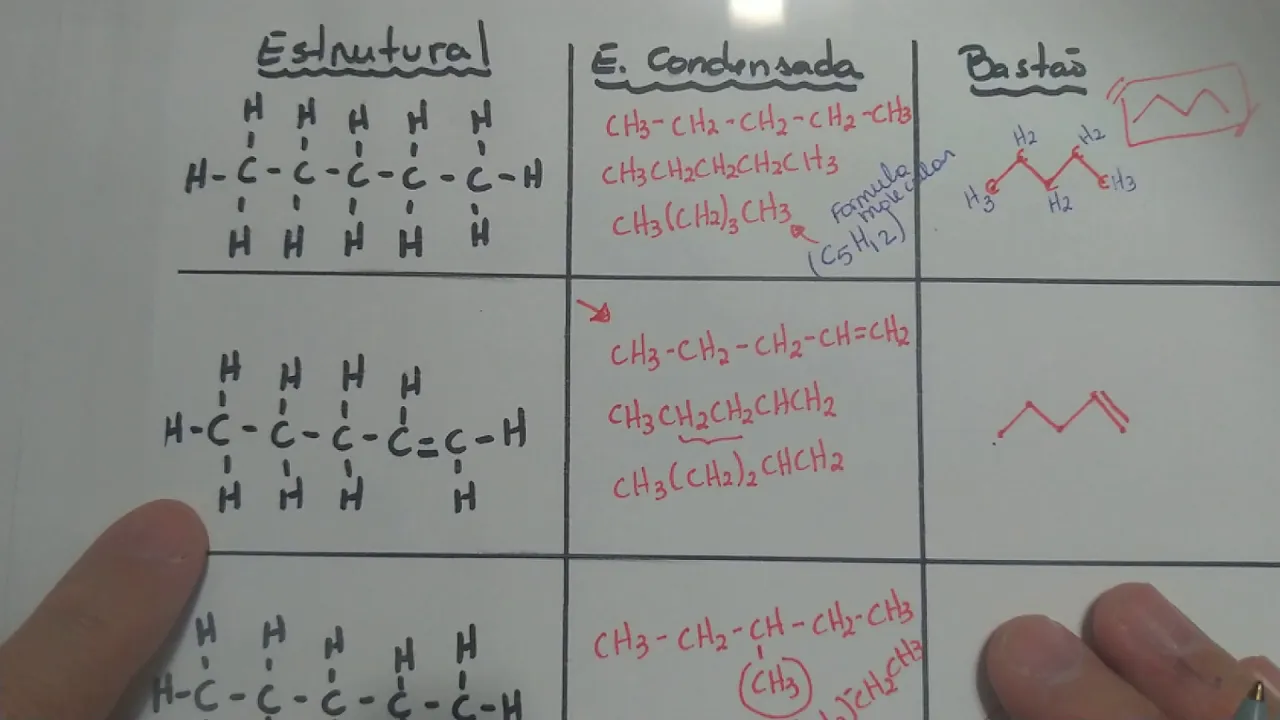 Estrutural
E. Condensada
Bastão
H H H H H
H-C-C-C-C-C-H
H H H H H
CH3-CH2-CH2-CH2-CH3
CH3CH2CH2CH2CH3
CH3(CH2)3CH3
Fórmula
molecular
(C5H12)
H2 H2
H3 C C C CH3
H2
H H H H
H-C-C-C-C=C-H
H H H H
CH3-CH2-CH2-CH=CH2
CH3CH2CH2CHCH2
CH3(CH2)2CHCH2
H H H H H
H-C-C-C-C-C-H
CH3-CH2-CH-CH2-CH3
CH3
CH2CH3